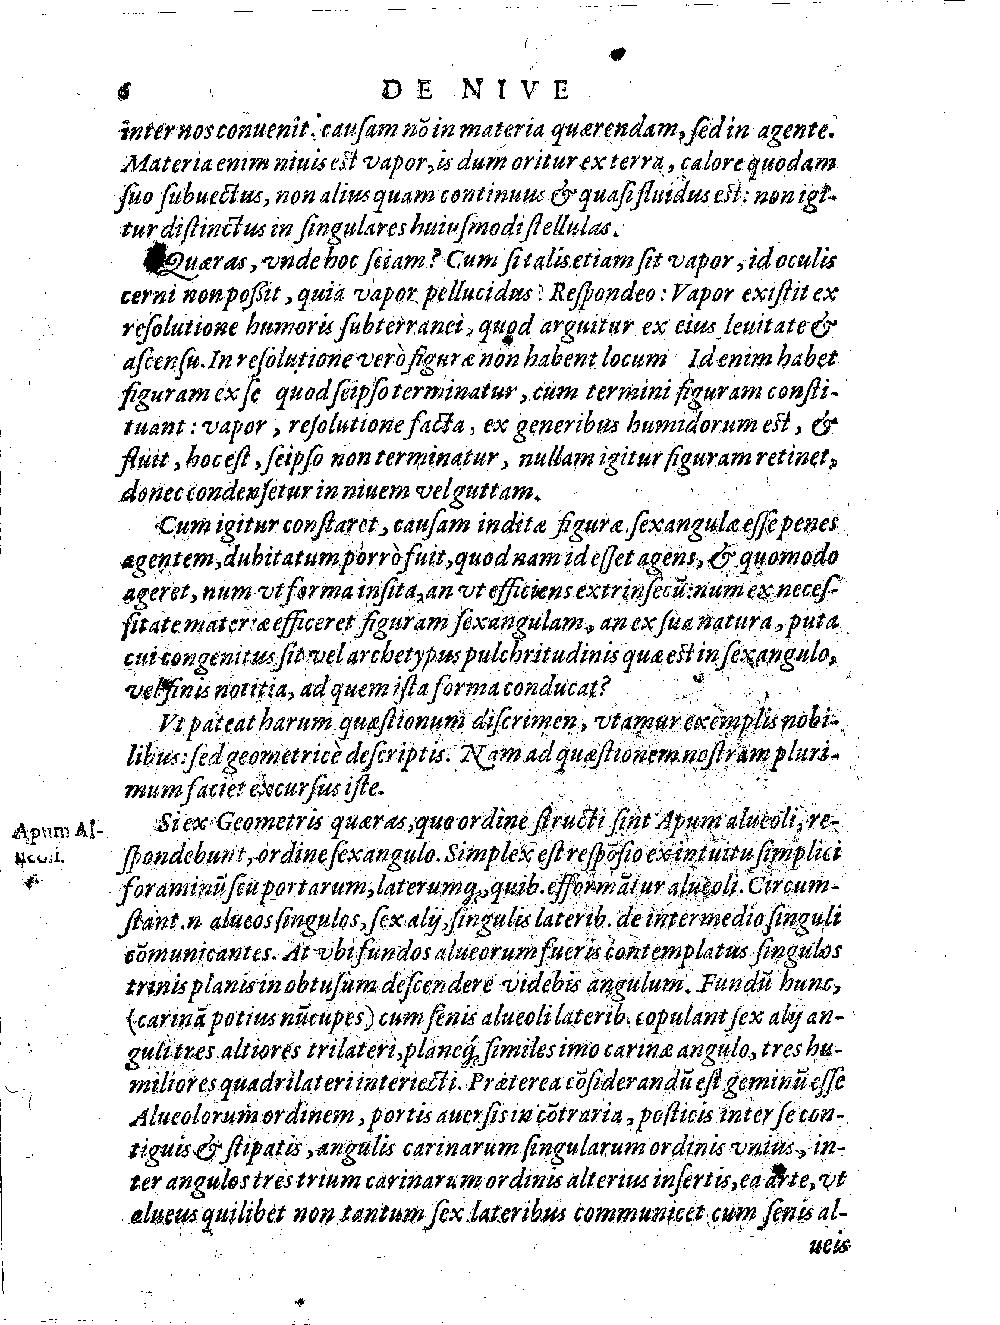 6 DE NIVE
inter nos conuenit: causam nõ in materia quærendam, sed in agente.
Materia enim niuis est vapor, is dum oritur ex terra, calore quodam
suo subuectus, non alius quam continuus & quasi fluidus est: non igi-
tur distinctus in singulares huiusmodi stellulas.
Quæras, vnde hoc sciam? Cum si talis etiam sit vapor, id oculis
cerni non possit, quia vapor pellucidus: Respondeo: Vapor existit ex
resolutione humoris subterranei, quod arguitur ex eius leuitate &
ascensu. In resolutione verò figuræ non habent locum Id enim habet
figuram ex se quod seipso terminatur, cum termini figuram consti-
tuant: vapor, resolutione facta, ex generibus humidorum est, &
fluit, hoc est, seipso non terminatur, nullam igitur figuram retinet,
donec condensetur in niuem vel guttam.
Cum igitur constaret, causam inditæ figuræ sexangulæ esse penes
agentem, dubitatum porrò fuit, quodnam id esset agens, & quomodo
ageret, num vt forma insita, an vt efficiens extrinsecũ: num ex neces-
sitate materiæ efficeret figuram sexangulam, an ex sua natura, puta
cui congenitus sit vel archetypus pulchritudinis quæ est in sexangulo,
vel finis notitia, ad quem ista forma conducat?
Vt pateat harum quæstionum discrimen, vtamur exemplis nobi-
libus: sed geometricè descriptis. Nam ad quæstionem nostram pluri-
mum faciet excursus iste.
Apum Al-
ueoli.
Si ex Geometris quæras, quo ordine structi sint Apum alueoli, re-
spondebunt, ordine sexangulo. Simplex est respõsio ex intuitu simplici
foraminũ seu portarum, laterumq;, quib. efformãtur alueoli. Circum-
stant .n alueos singulos, sex alij, singulis laterib. de intermedio singuli
cõmunicantes. At vbi fundos alueorum fueris contemplatus singulos
trinis planis in obtusum descendere videbis angulum. Fundũ hunc,
(carinã potius nũcupes) cum senis alueoli laterib. copulant sex alij an-
guli tres altiores trilateri, planeq; similes imo carinæ angulo, tres hu-
miliores quadrilateri interiecti. Præterea cõsiderandũ est geminũ esse
Alueolorum ordinem, portis auersis in cõtraria, posticis inter se con-
tiguis & stipatis, angulis carinarum singularum ordinis vnius, in-
ter angulos tres trium carinarum ordinis alterius insertis, ea arte, vt
alueus quilibet non tantum sex lateribus communicet cum senis al-
ueis